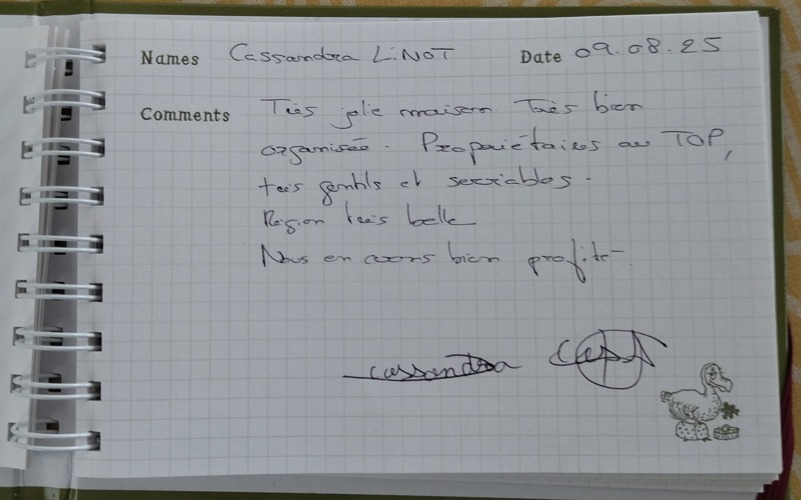 Names Cassandra LiNOT Date 09.08.25
Comments Très jolie maison Très bien
organisée. Propriétaires au TOP,
très gentils et serviables.
Région très belle
Nous en avons bien profité
Cassandra